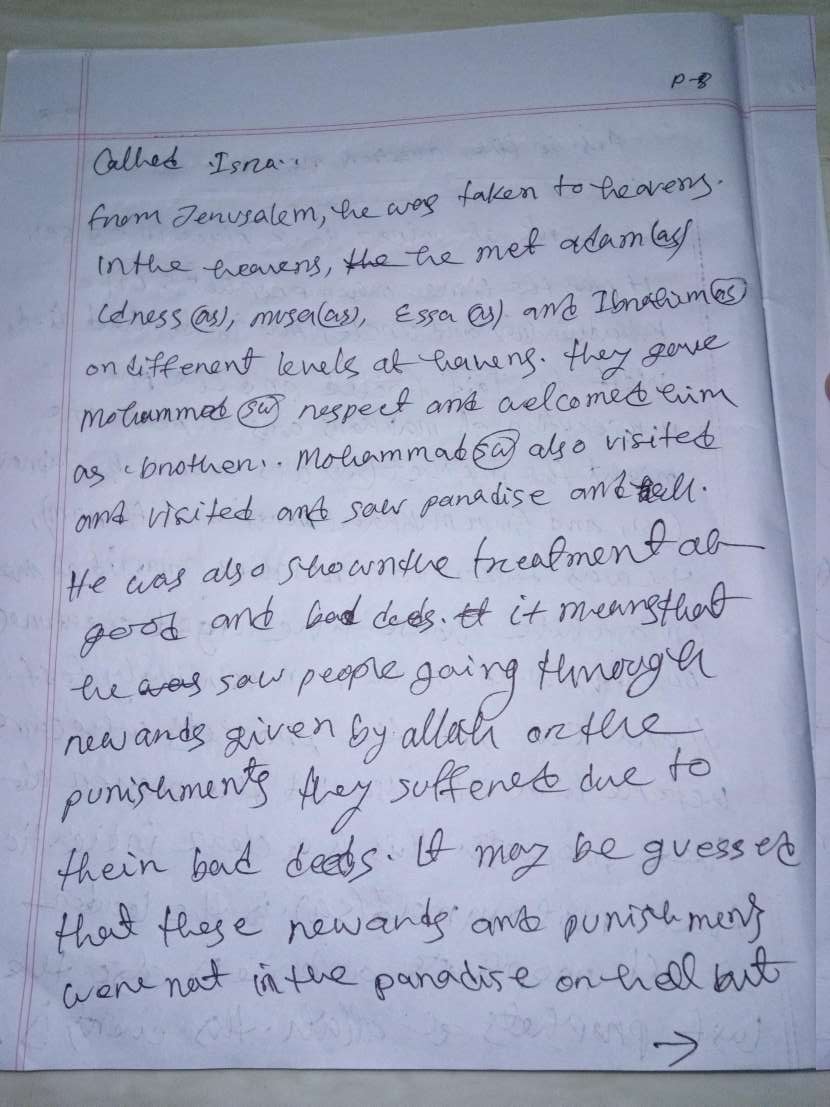 P-8
Called "Isra"
from Jerusalem, he was taken to heavens.
In the heavens, the he met adam (as)
Idress (as), musa (as), Essa (as) and Ibrahim (as)
on different levels of havens. they gave
Mohammad (sw) respect and welcomed him
as "brother". Mohammad (sw) also visited
and visited and saw paradise and hell.
He was also shown the treatment of
good and bad deeds. it means that
he was saw people going through
rewards given by allah or the
punishments they suffered due to
their bad deeds. It may be guessed
that these rewards and punishments
were not in the paradise or hell but
→